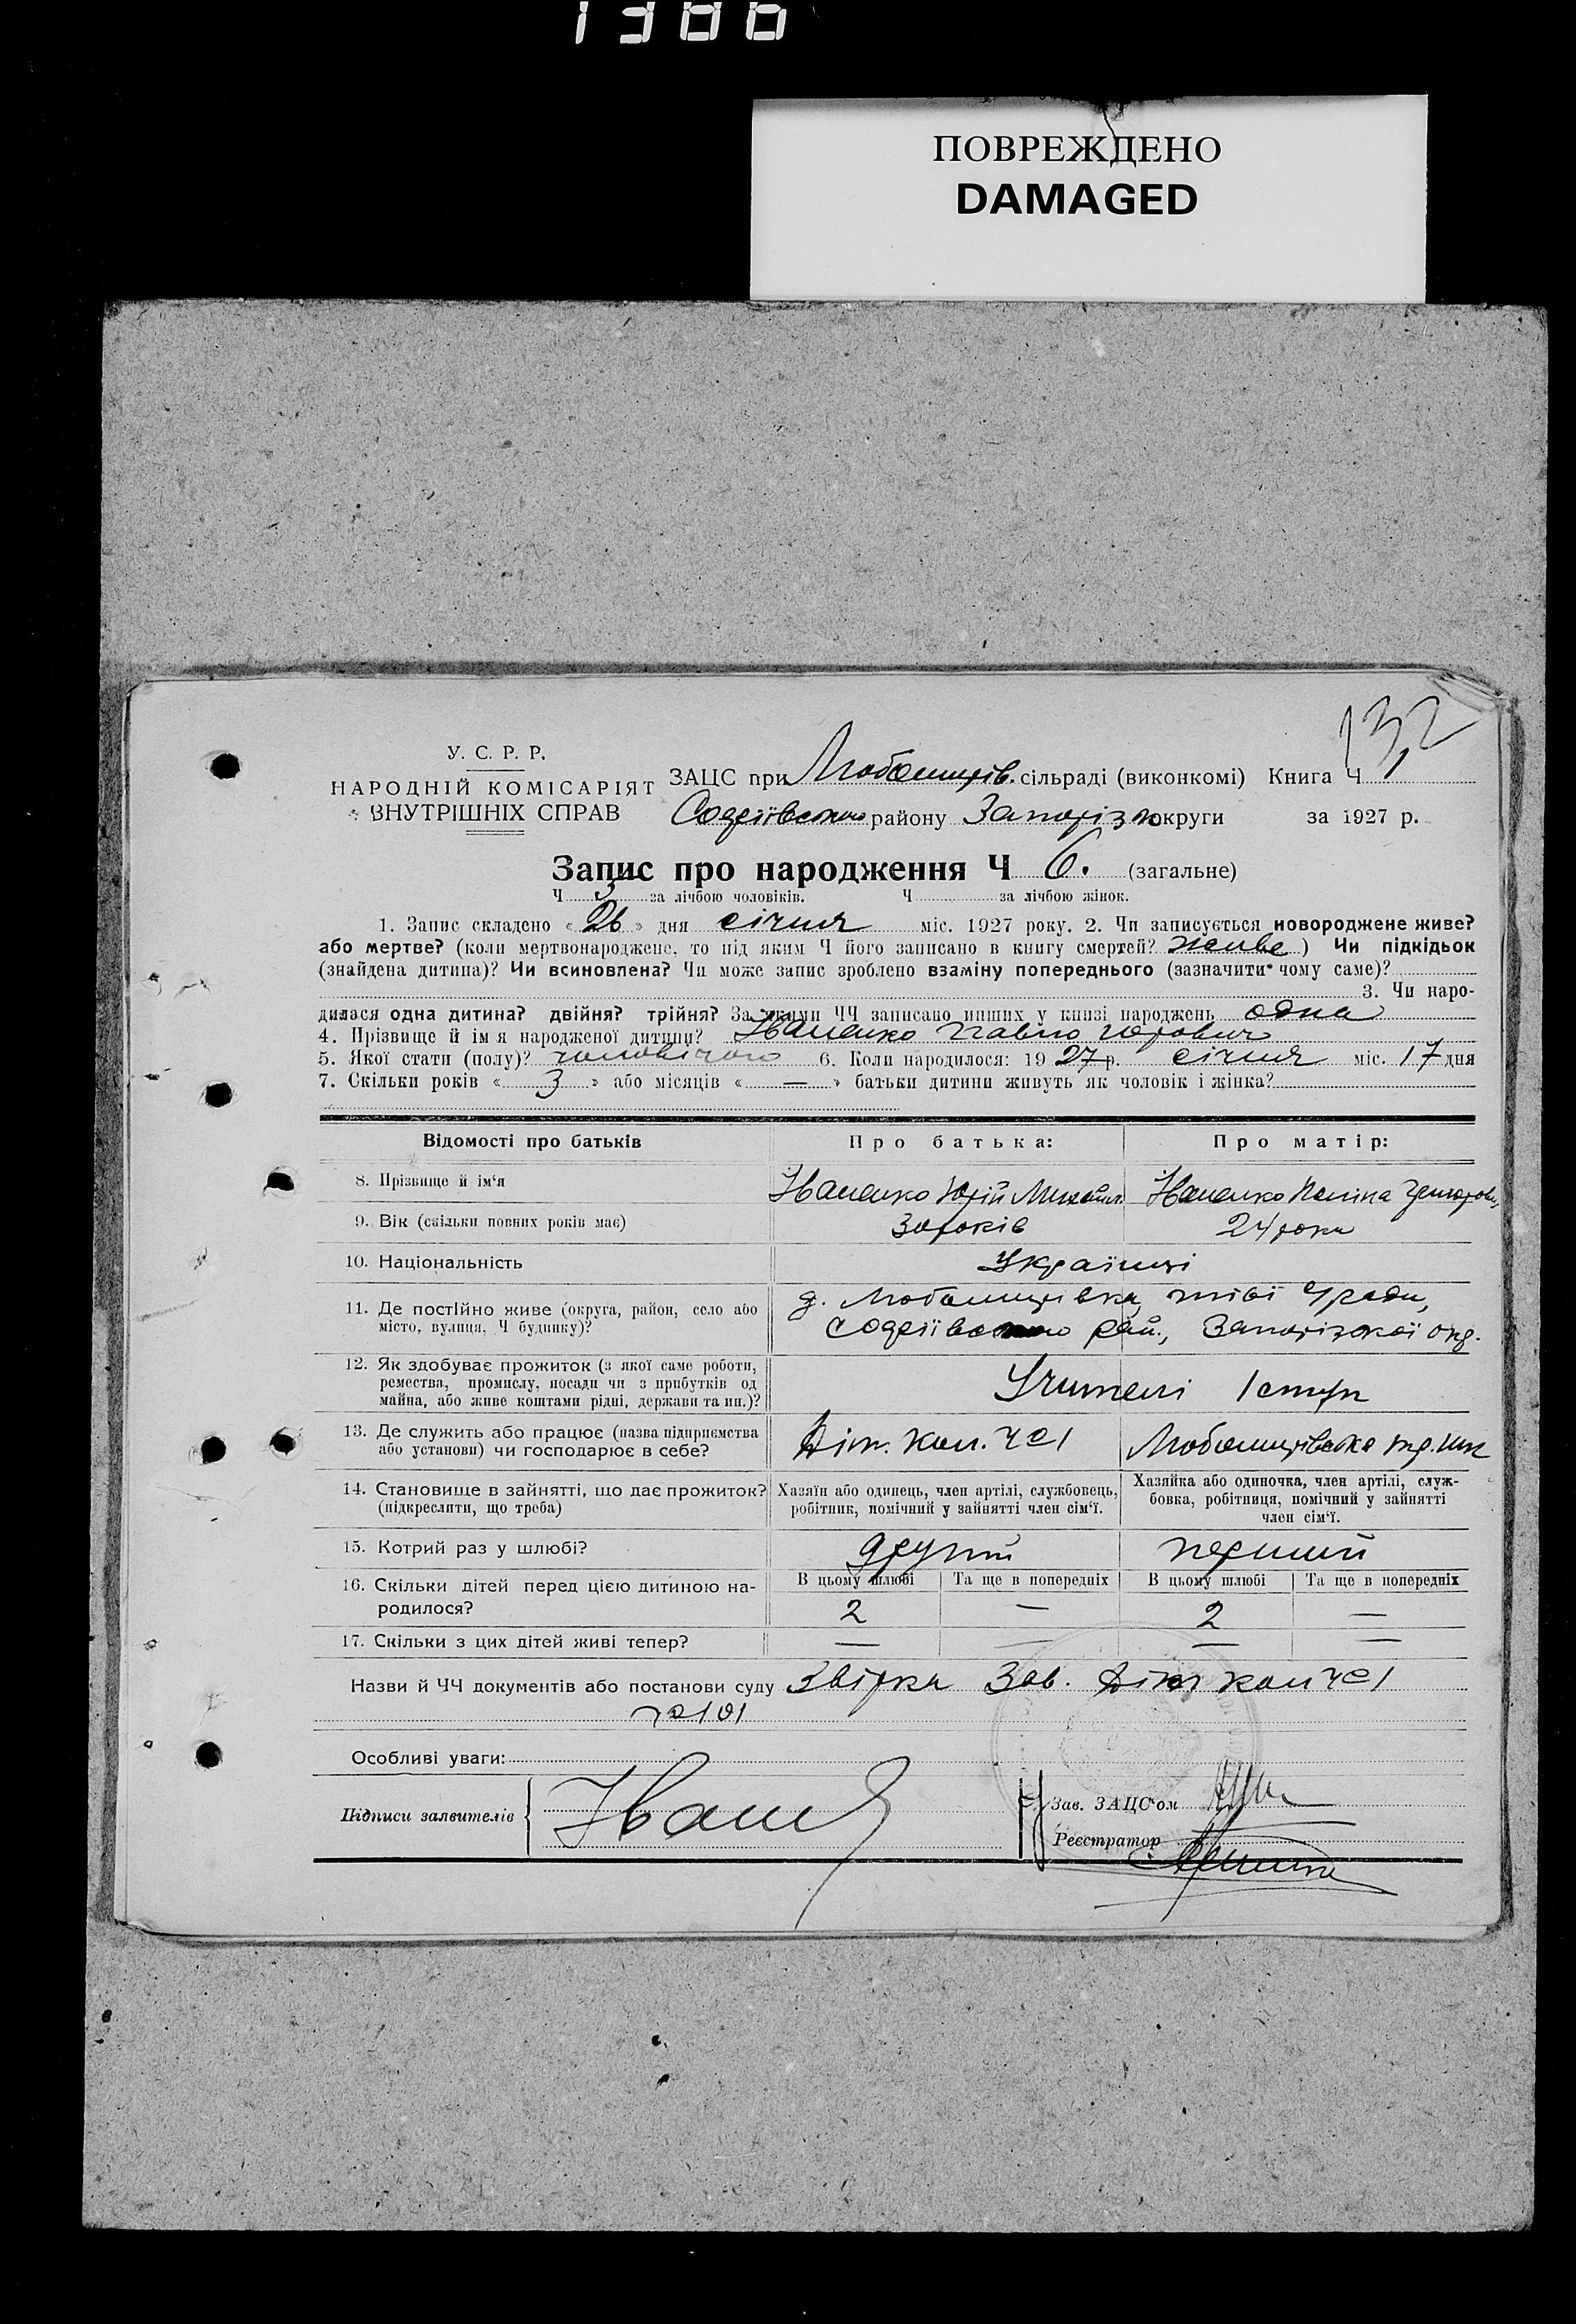 1386
ПОВРЕЖДЕНО
DAMAGED
132
У. С. Р. Р.
НАРОДНІЙ КОМІСАРІЯТ
ВНУТРІШНІХ СПРАВ
ЗАЦС при Любомирів. сільраді (виконкомі) Книга Ч 1
Софіївського району Запоріз округи за 1927 р.
Запис про народження Ч 6. (загальне)
Ч 3 за лічбою чоловіків. Ч за лічбою жінок.
1. Запис складено « 26 » дня січня міс. 1927 року. 2. Чи записується новороджене живе?
або мертве? (коли мертвонароджене, то під яким Ч його записано в книгу смертей? живе ) Чи підкідьок
(знайдена дитина)? Чи всиновлена? Чи може запис зроблено взаміну попереднього (зазначити чому саме)?
3. Чи наро-
дилася одна дитина? двійня? трійня? За якими ЧЧ записано инших у книзі народжень одна
4. Прізвище й ім я народженої дитини? Іваненко Павло Юрович
5. Якої стати (полу)? чоловічого 6. Коли народилося: 19 27 р. січня міс. 17 дня
7. Скільки років « 3 » або місяців « — » батьки дитини живуть як чоловік і жінка?
Відомості про батьків Про батька: Про матір:
8. Прізвище й ім‘я Іваненко Юрій Михайл. Іваненко Поліна Григоров.
9. Вік (скільки повних років має) 30 років 24 роки
10. Національність Українці
11. Де постійно живе (округа, район, село або
місто, вулиця, Ч будинку)?
д. Любомирівка, тієї С/ради,
Софіївського рай., Запорізької окр.
12. Як здобуває прожиток (з якої саме роботи,
ремества, промислу, посади чи з прибутків од
майна, або живе коштами рідні, держави та ин.)?
Учителі
13. Де служить або працює (назва підприємства
або установи) чи господарює в себе?
Діт. кол. Ч 1 Любомирівська тр. шк
14. Становище в зайнятті, що дає прожиток?
(підкреслити, що треба)
Хазяїн або одинець, член артілі, службовець,
робітник, помічний у зайнятті член сім‘ї.
Хазяйка або одиночка, член артілі, служ-
бовка, робітниця, помічний у зайнятті
член сім‘ї.
15. Котрий раз у шлюбі? другий перший
16. Скільки дітей перед цією дитиною на-
родилося?
В цьому шлюбі Та ще в попередніх В цьому шлюбі Та ще в попередніх
2 — 2 —
17. Скільки з цих дітей живі тепер? — — — —
Назви й ЧЧ документів або постанови суду Звірка Зав. Діт кол Ч 1
101
Особливі уваги:
Підписи заявителів Іван
Зав. ЗАЦС‘ом
Реєстратор